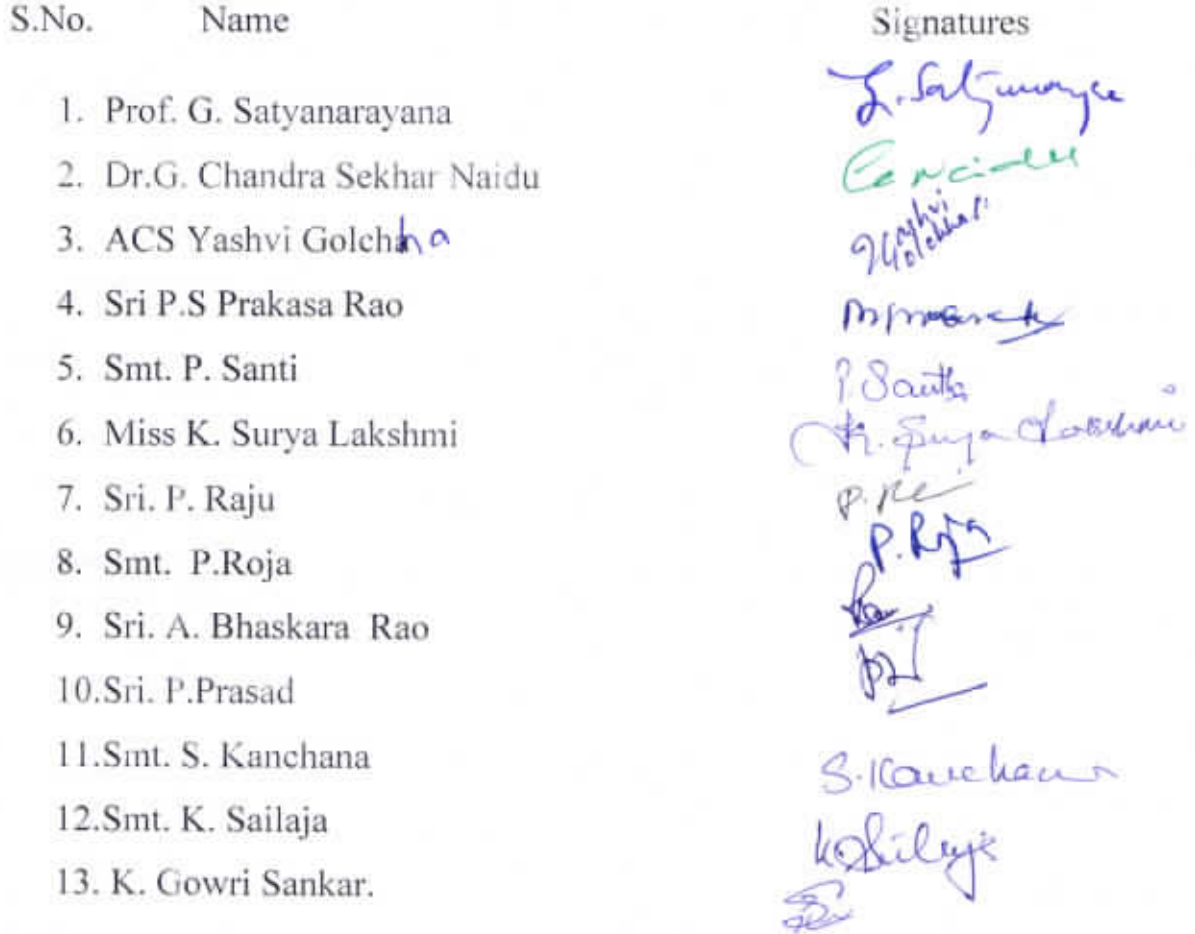 S.No. Name Signatures
1. Prof. G. Satyanarayana
2. Dr.G. Chandra Sekhar Naidu
3. ACS Yashvi Golchha Yashvi Golchha
4. Sri P.S Prakasa Rao
5. Smt. P. Santi P Santhi
6. Miss K. Surya Lakshmi K. Surya Lakshmi
7. Sri. P. Raju
8. Smt. P.Roja P. Roja
9. Sri. A. Bhaskara Rao
10.Sri. P.Prasad
11.Smt. S. Kanchana S. Kanchana
12.Smt. K. Sailaja K. Sailaja
13. K. Gowri Sankar.